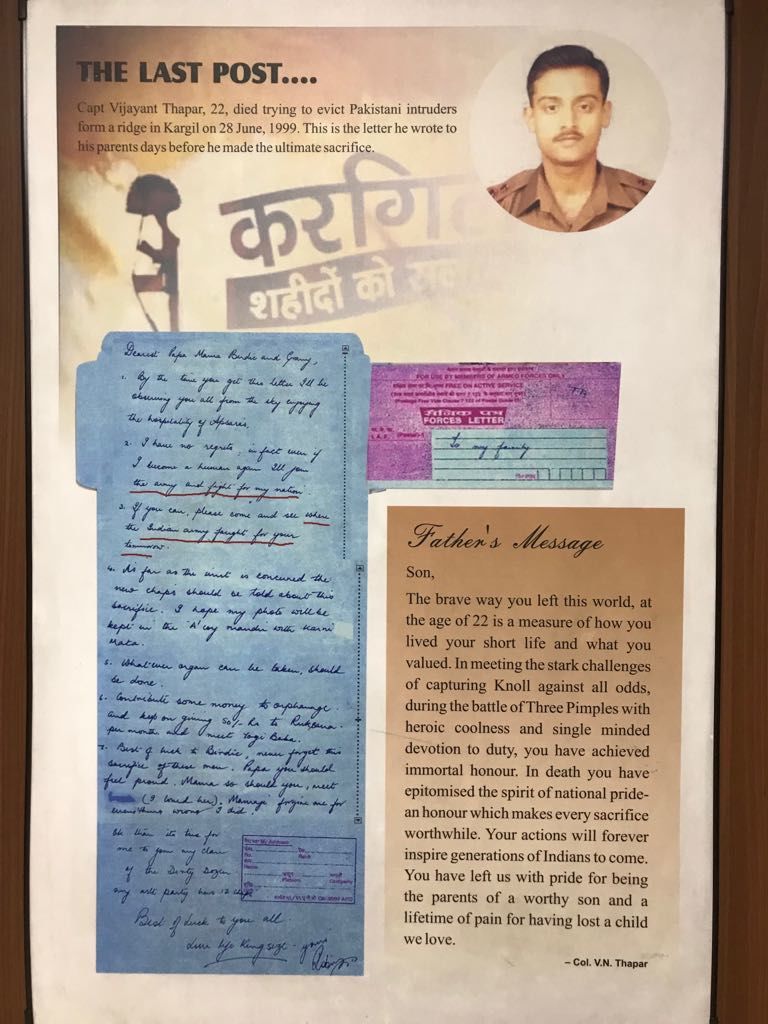 THE LAST POST....
Capt Vijayant Thapar, 22, died trying to evict Pakistani intruders
form a ridge in Kargil on 28 June, 1999. This is the letter he wrote to
his parents days before he made the ultimate sacrifice.
करगिल
शहीदों को
Dearest Papa Mama Birdie and Granny,
1. By the time you get this letter I'll be
observing you all from the sky enjoying
the hospitality of Apsaras.
2. I have no regrets, in fact even if
I become a human again I'll join
the army and fight for my nation.
3. If you can, please come and see where
the Indian army fought for your
tomorrow.
4. As far as the unit is concerned the
new chaps should be told about this
sacrifice. I hope my photo will be
kept in the 'A' coy mandir with Karni
Mata.
5. Whatever organ can be taken, should
be done.
6. Contribute some money to orphanage
and keep on giving 50/- Rs to Rukhsana
per month and meet Yogi Baba.
7. Best of luck to Birdie, never forget this
sacrifice of these men. Papa you should
feel proud. Mama so should you, meet
(I loved her). Mamaji forgive me for
everything wrong I did.
Ok then its time for
me to join my clan
of the Dirty Dozen
my party has 12 chaps
Best of Luck to you all.
Live life Kingsize. yours
FOR USE BY MEMBERS OF ARMED FORCES ONLY
FREE ON ACTIVE SERVICE
सैनिक पत्र
FORCES LETTER
To my family
Father's Message
Son,
The brave way you left this world, at
the age of 22 is a measure of how you
lived your short life and what you
valued. In meeting the stark challenges
of capturing Knoll against all odds,
during the battle of Three Pimples with
heroic coolness and single minded
devotion to duty, you have achieved
immortal honour. In death you have
epitomised the spirit of national pride-
an honour which makes every sacrifice
worthwhile. Your actions will forever
inspire generations of Indians to come.
You have left us with pride for being
the parents of a worthy son and a
lifetime of pain for having lost a child
we love.
– Col. V.N. Thapar